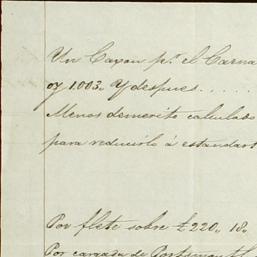 Un Caxon pr. el Carna
oz 1.003. Y despues.....
Menos demerito calculado
para reducirlo á estandart
Por flete sobre £220,,18,,
Por cargada de Portsmouth